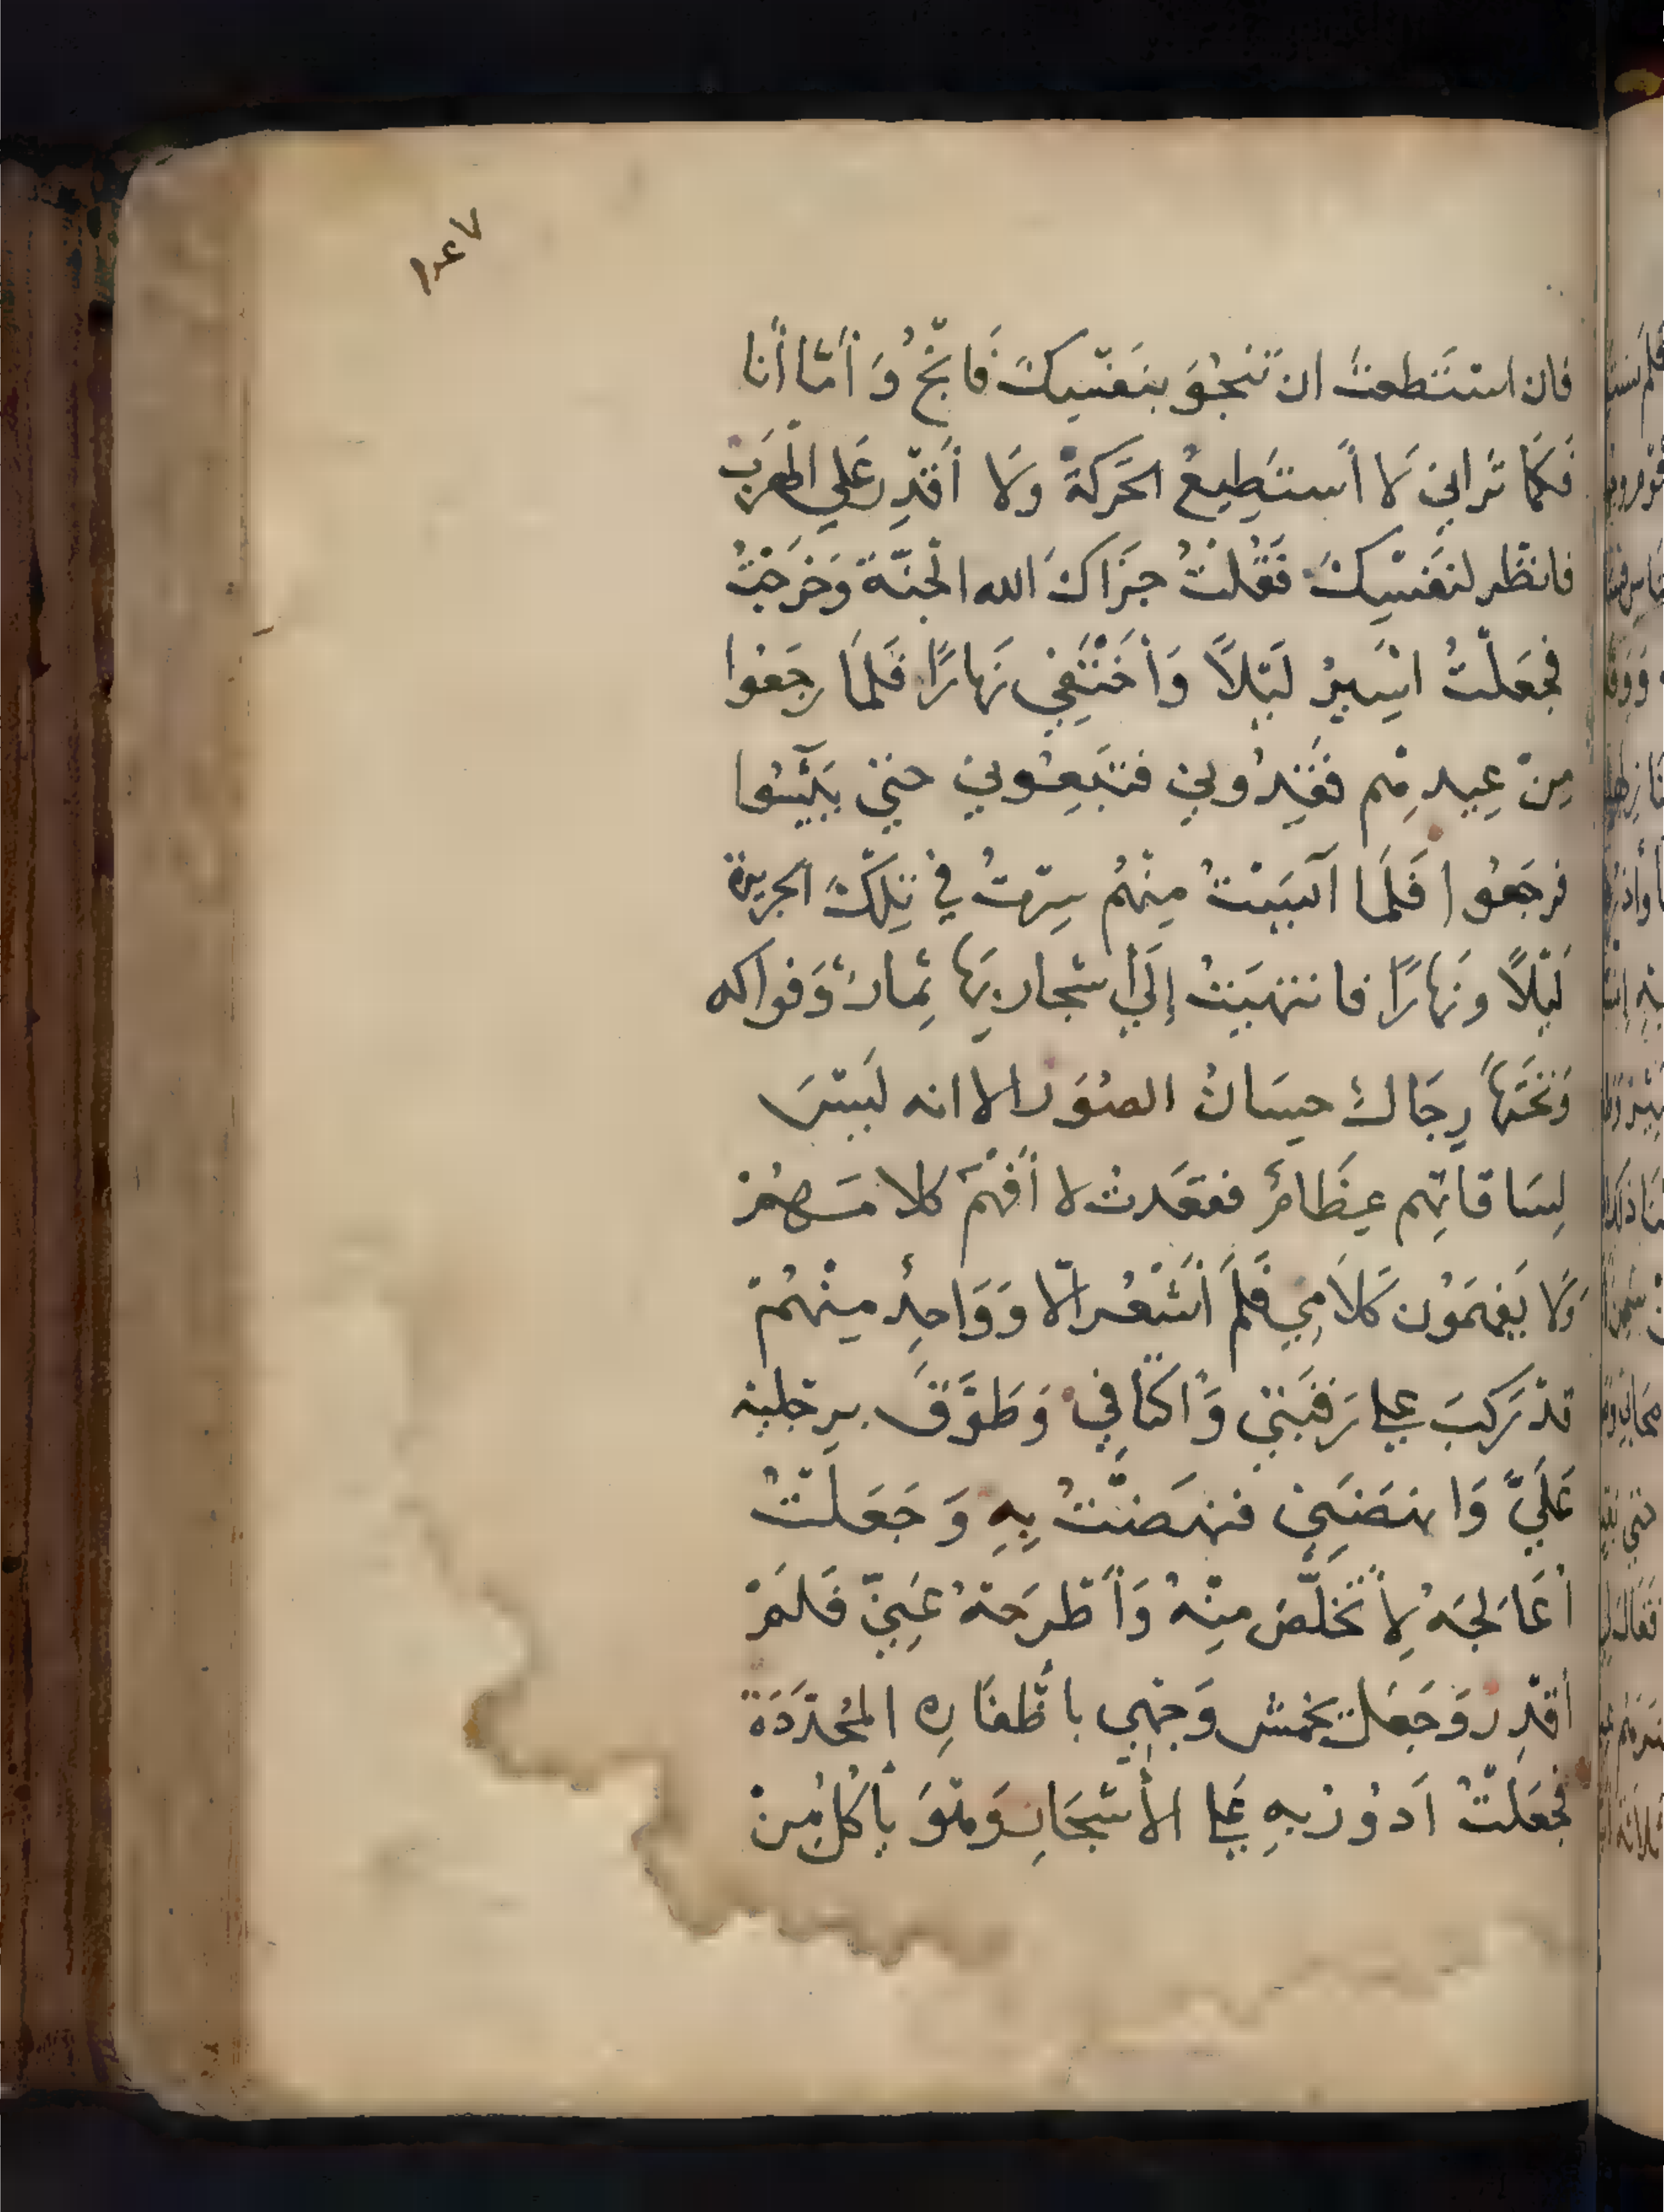 ١٤٧
فان استَطعتَ ان تَنجُوَ بنَفسِكَ فَانْجُ وَأَمّا أنا
فَكَمَا تَرانِي لَا أَستَطِيعُ الحَركةَ ولَا أَقدِر عَلى الهَرَبْ
فانظر لنَفسِكَ فَقُلتُ جَزَاكَ الله الجَنّةَ وَخَرَجْتُ
فجَعَلتُ اسِيرُ لَيْلاً وَأَختَفِي نَهارًا فَلمَا رجَعوا
مِنْ عِيدِهِم فَقَدُونِي فتَبِعُونِي حتى يَئِسُوا
فرجَعُوا فَلَمَا آيَسْتُ مِنهُم سِرتُ فِي تِلكَ الجزيرة
لَيْلاً ونَهارًا فانتهَيتُ إلَي أشجار بِهَا ثِمارٌ وَفواكه
وَتَحتَهَا رِجَالٌ حِسَانُ الصُوَر الا انه لَيْسَ
لِسَاقَاتِهِم عِظَامٌ فقعَدتُ لا أَفْهَم كلامَهُمْ
وَلَا يَفهَمُون كَلاَمِي فَلَم أَشْعُر الّا وَوَاحِدٌ مِنْهُمْ
قدْ رَكِبَ على رَقَبَتي وَأكتَافِي وَطَوَّقَ برِجْليْه
عَلَيَّ وَانهَضَنِي فنهَضْتُ بِهِ وَجَعَلْتُ
أعَالجَهُ لِأَتَخَلَّصَ مِنْهُ وَأَطْرَحَهُ عَنِيّ فَلَمْ
أقْدِرْ وَجَعَلَ يَخمشُ وَجْهِي بأَظْفَارِهِ المُحَدَّدَة
فجَعَلْتُ اَدُورُ بِهِ عَلى الأَشجَارِ وَهْوَ يأكُلُ مِنْ